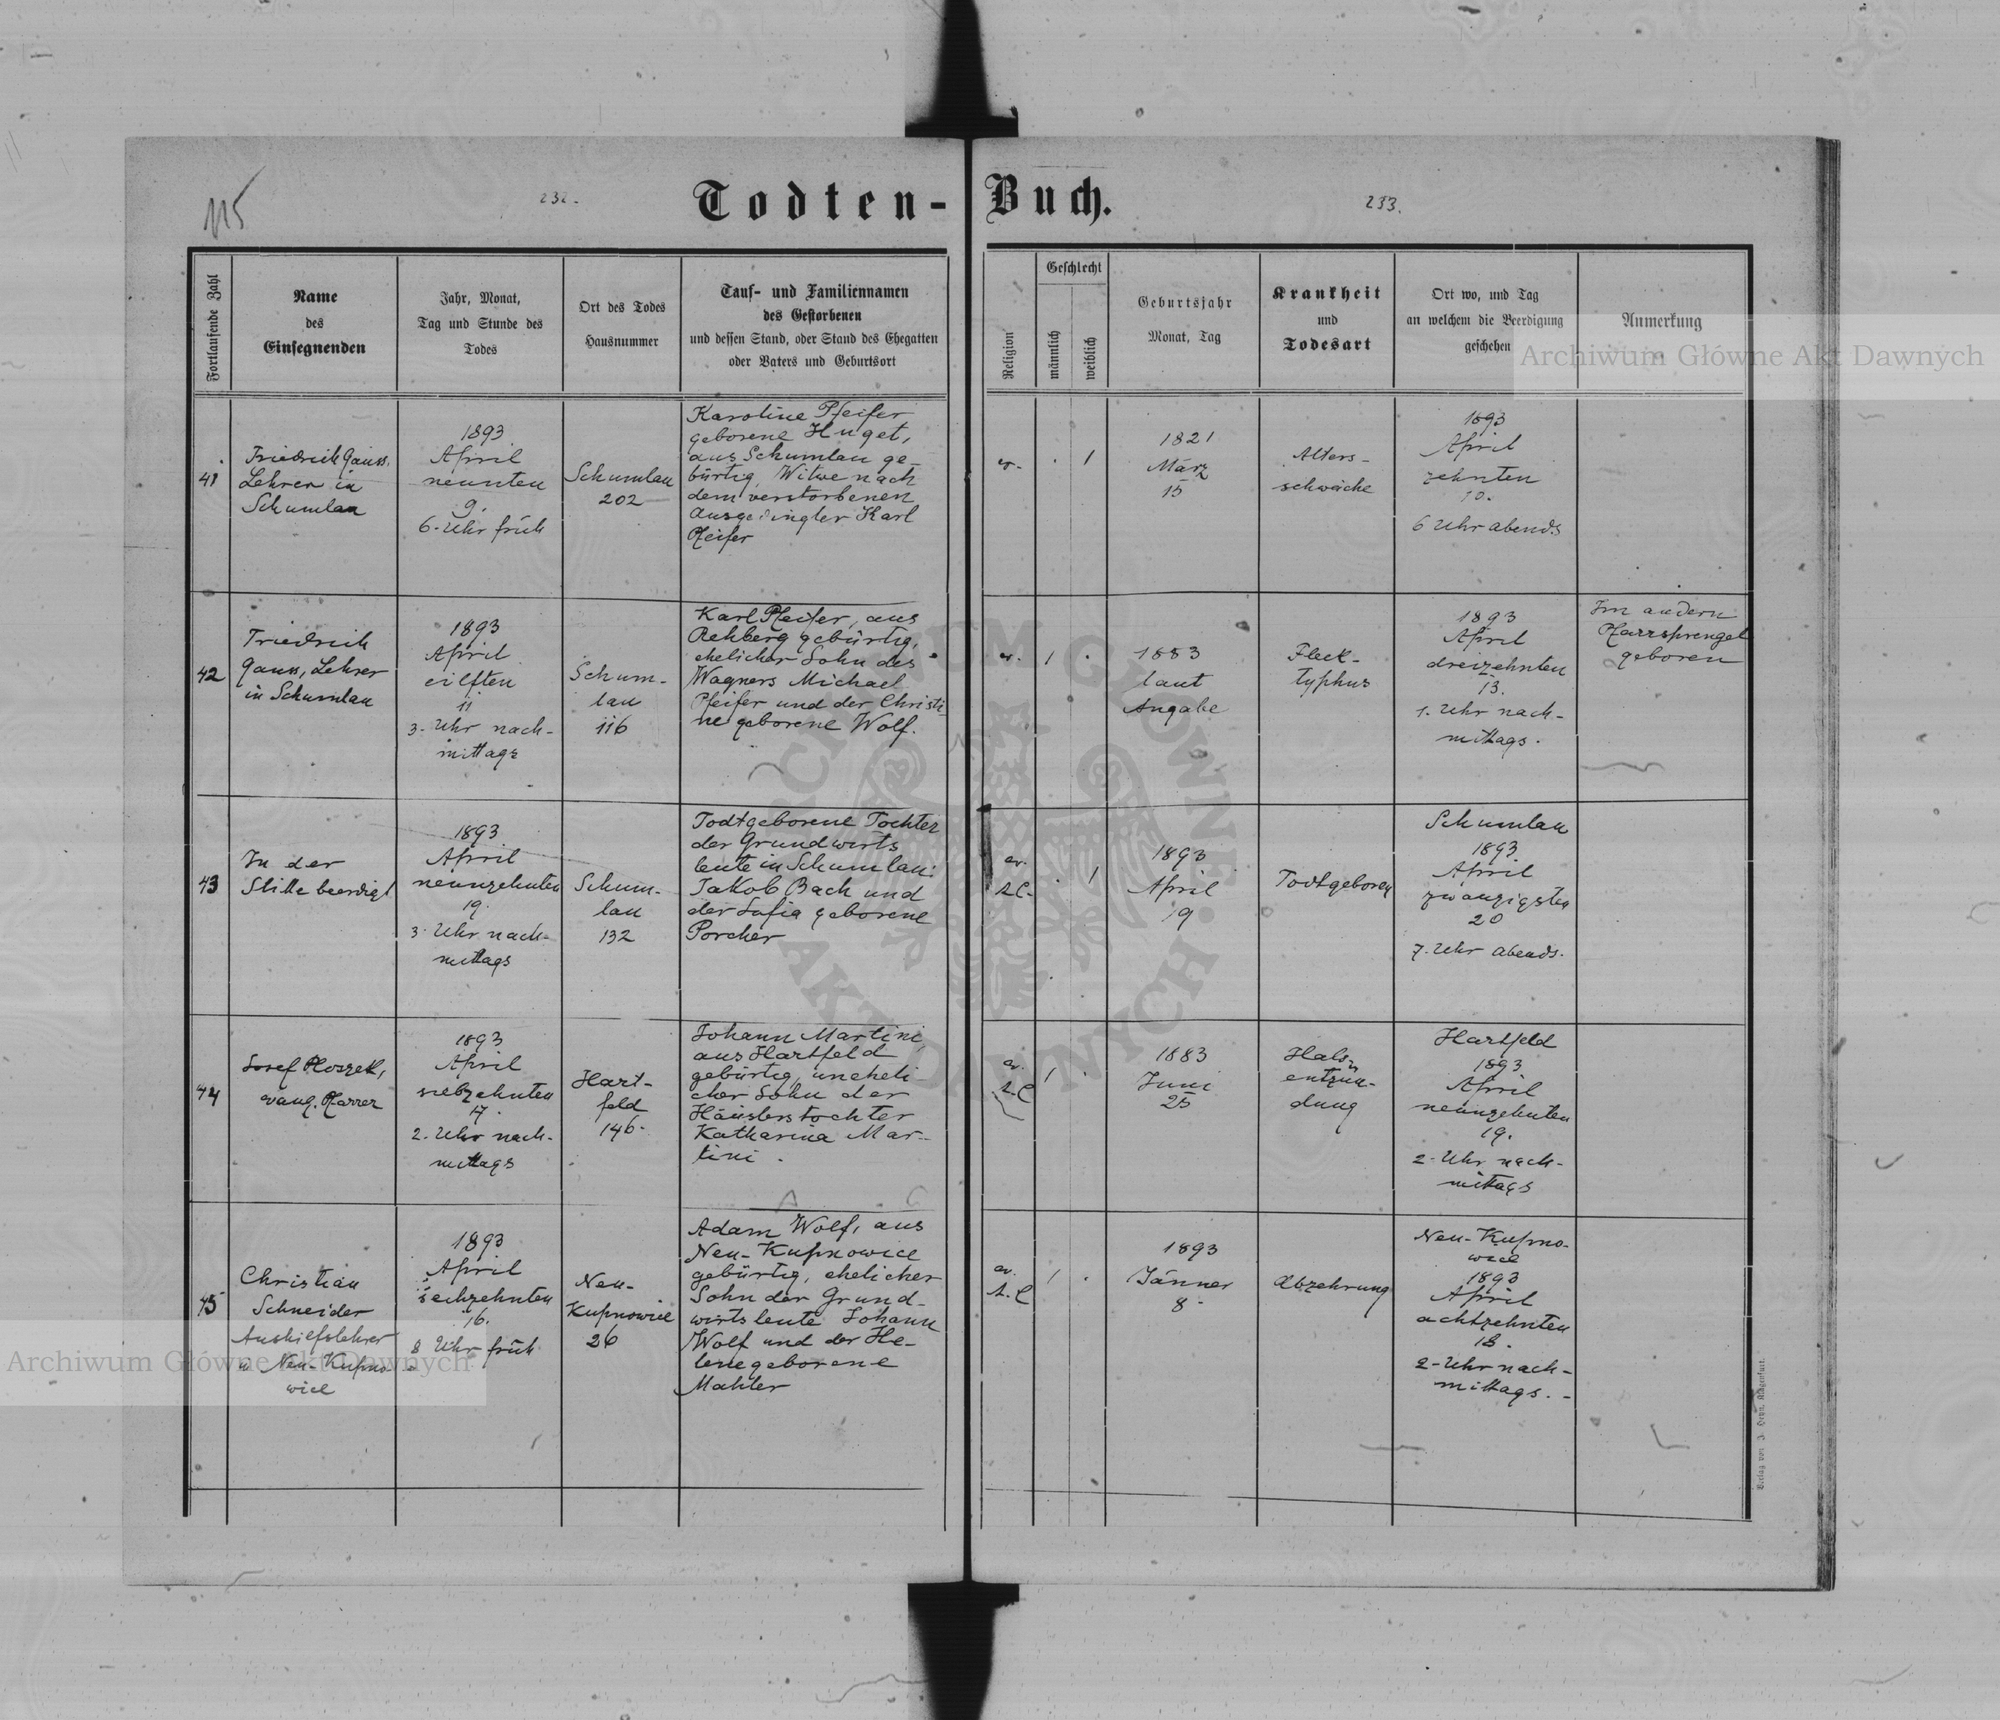 115
232.
Todten-
Buch.
233.
Fortlaufende Zahl
Name
des
Einsegnenden
Jahr, Monat,
Tag und Stunde des
Todes
Ort des Todes
Hausnummer
Tauf- und Familiennamen
des Gestorbenen
und dessen Stand, oder Stand des Ehegatten
oder Vaters und Geburtsort
Religion
Geschlecht
männlich
weiblich
Geburtsjahr
Monat, Tag
Krankheit
und
Todesart
Ort wo, und Tag
an welchem die Beerdigung
geschehen
Anmerkung
Archiwum Główne Akt Dawnych
41
Friedrich Gauss,
Lehrer in
Schumlau
1893
April
neunten
9.
6. Uhr früh
Schumlau
202
Karoline Pfeifer
geborene Huget,
aus Schumlau ge-
bürtig, Witwe nach
dem verstorbenen
Ausgedingler Karl
Pfeifer
ev.
. 1
1821
März
15
Alters-
schwäche
1893
April
zehnten
10.
6 Uhr abends
42
Friedrich
Gauss, Lehrer
in Schumlau
1893
April
eilften
11
3. Uhr nach-
mittags
Schum-
lau
116
Karl Pfeifer, aus
Rehberg gebürtig,
ehelicher Sohn des
Wagners Michael
Pfeifer und der Christi-
ne geborene Wolf.
ev.
1 .
1883
laut
Angabe
Fleck-
typhus
1893
April
dreizehnten
13.
1. Uhr nach-
mittags.
Im andern
Pfarrsprengel
geboren
43
In der
Stille beerdigt
1893
April
neunzehnten
19.
3. Uhr nach-
mittags
Schum-
lau
132
Todtgeborene Tochter
der Grundwirts
leute in Schumlau:
Jakob Bach und
der Sofia geborene
Porcher
ev.
A.C.
. 1
1893
April
19
Todtgeboren
Schumlau
1893
April
zwanzigsten
20
7. Uhr abends.
44
Josef
evang. Pfarrer
1893
April
siebzehnten
17.
2. Uhr nach-
mittags
Hart-
feld
146.
Johann Martini,
aus Hartfeld
gebürtig, uneheli-
cher Sohn der
Häuslerstochter
Katharina Mar-
tini.
ev.
A.C
1 .
1883
Juni
25
Hals-
entzün-
dung
Hartfeld
1893
April
neunzehnten
19.
2. Uhr nach-
mittags
45
Christian
Schneider
Aushilfslehrer
in Neu-Kupno-
wice
1893
April
sechzehnten
16.
8 Uhr früh
Neu-
Kupnowice
26
Adam Wolf, aus
Neu-Kupnowice
gebürtig, ehelicher
Sohn der Grund-
wirtsleute Johann
Wolf und der He-
lene geborene
Mahler
ev.
A.C
1 .
1893
Jänner
8.
Abzehrung
Neu-Kupno-
wice
1893
April
achtzehnten
18.
2-Uhr nach-
mittags.
Archiwum Główne Akt Dawnych
ARCHIWUM GŁÓWNE AKT DAWNYCH